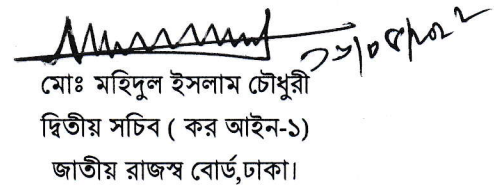 মোঃ মহিদুল ইসলাম চৌধুরী
দ্বিতীয় সচিব ( কর আইন-১)
জাতীয় রাজস্ব বোর্ড,ঢাকা।